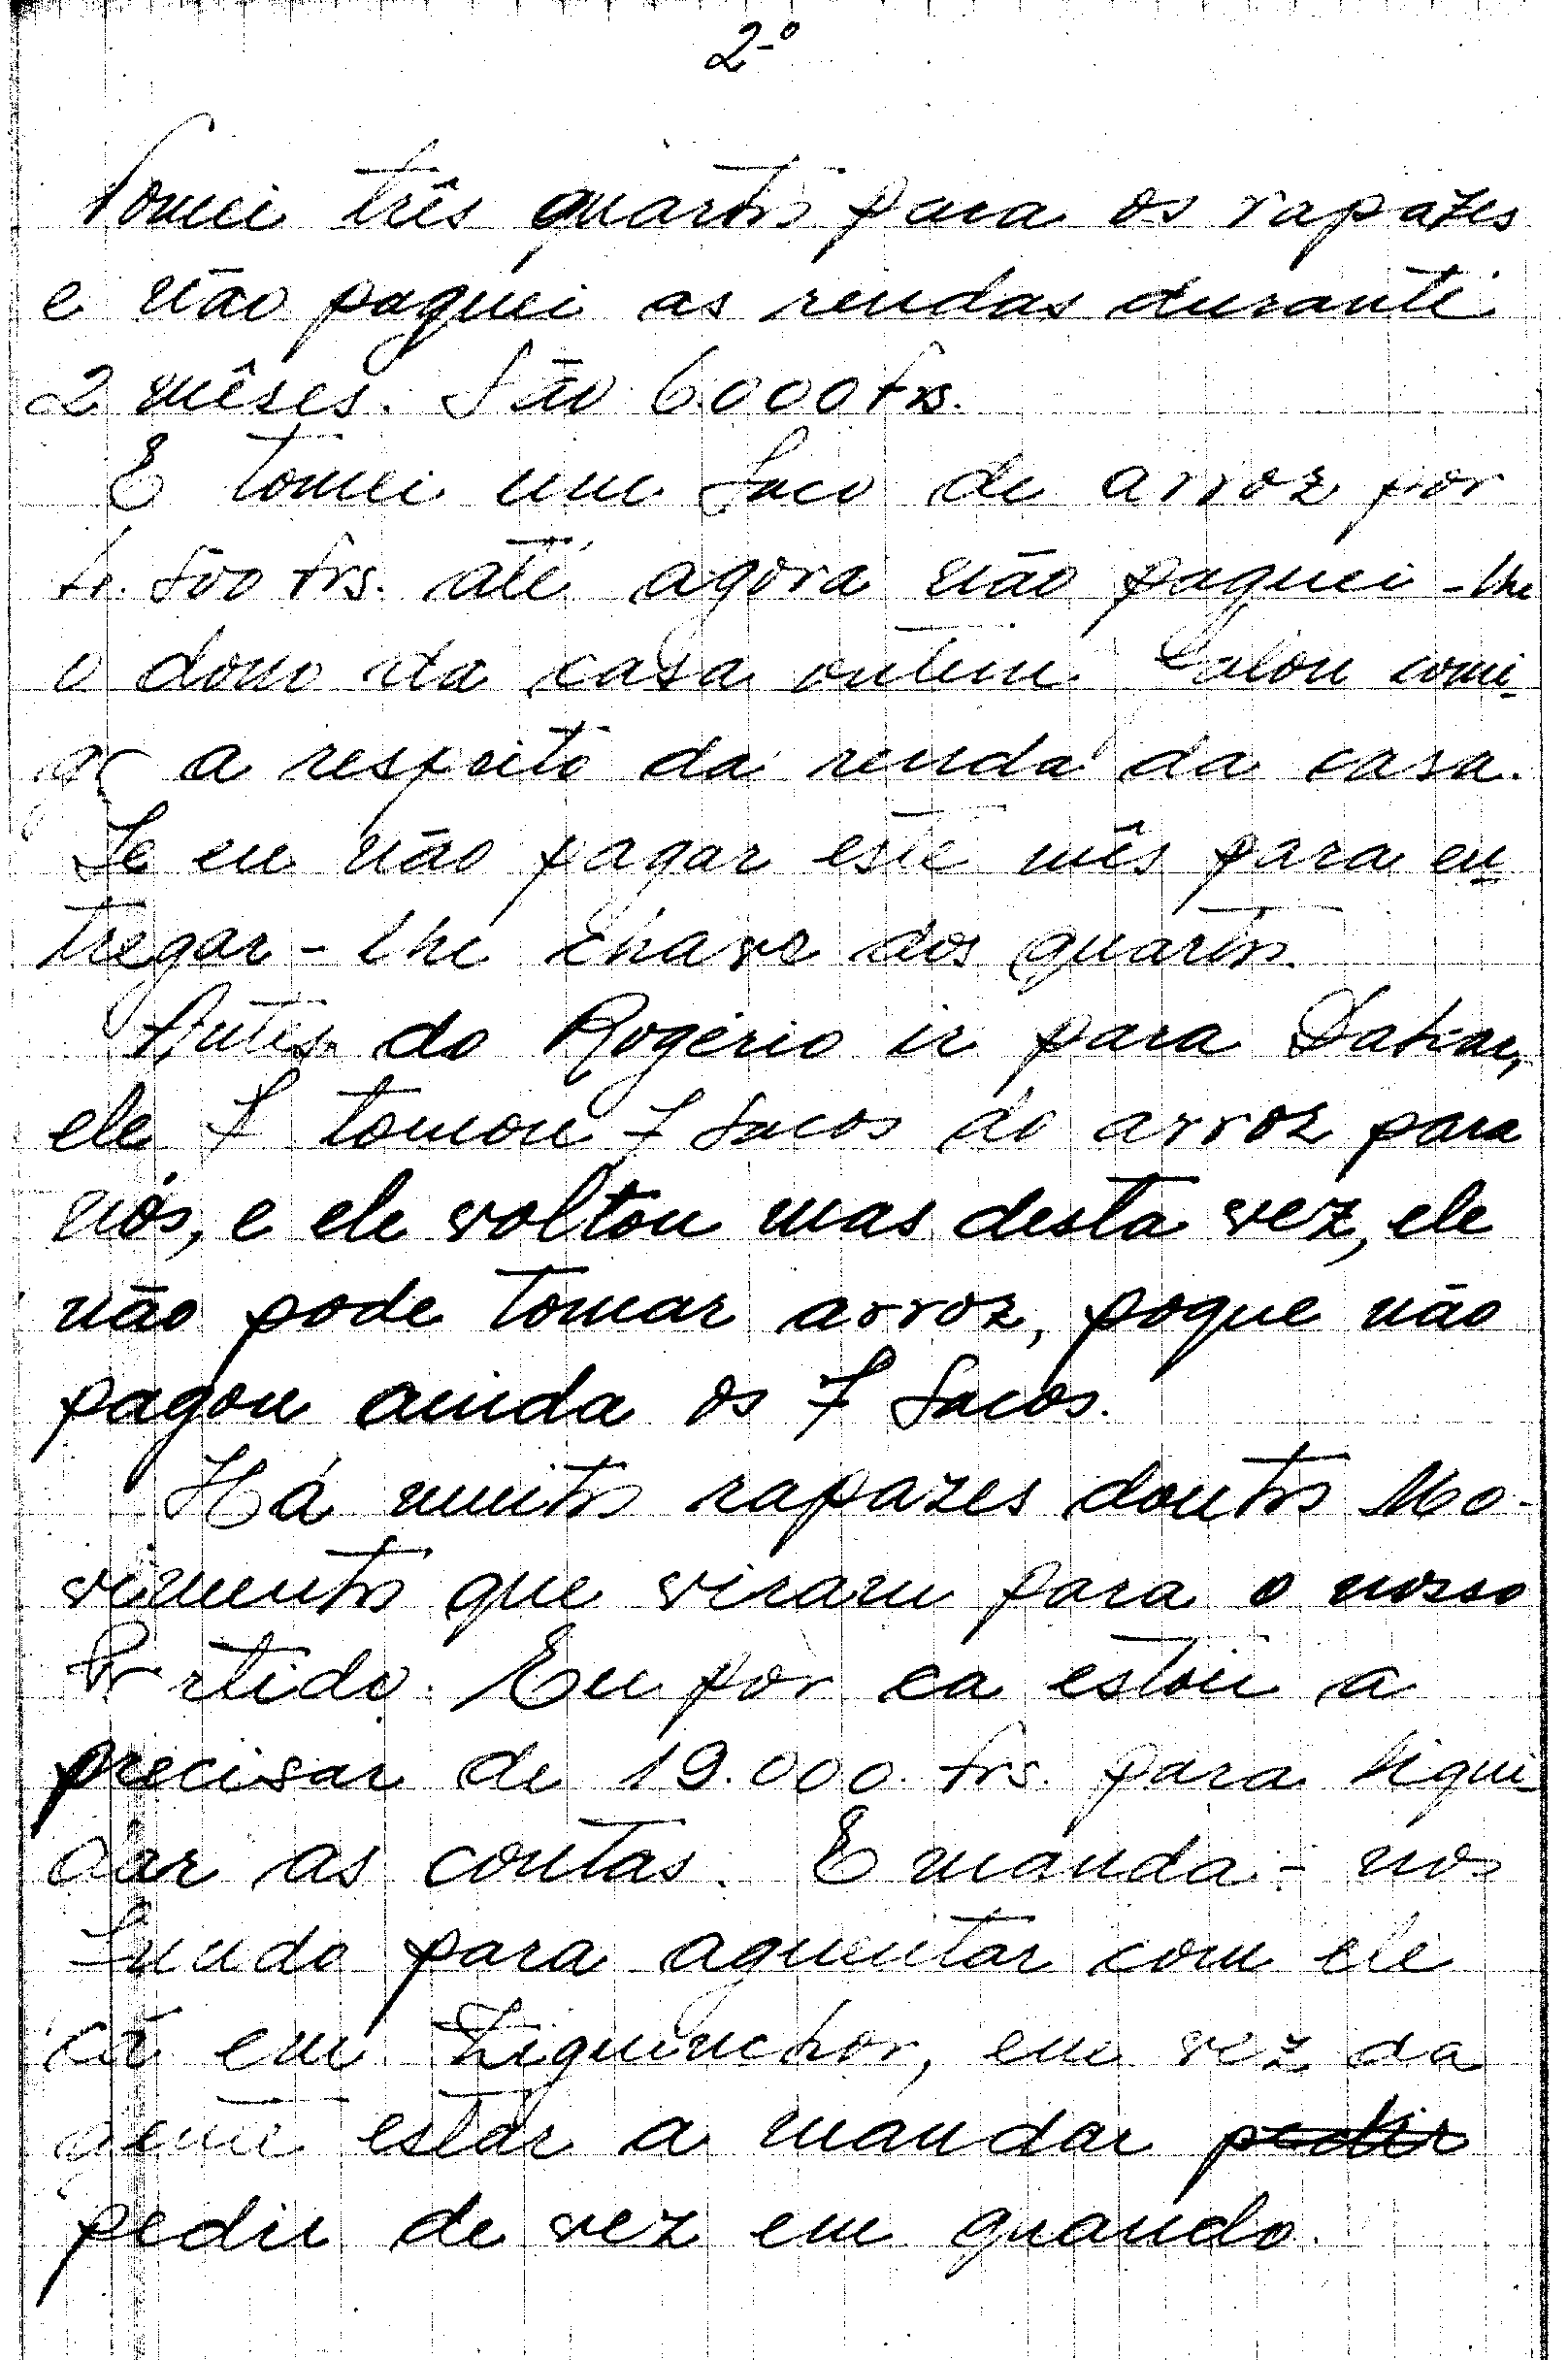 2º
Tomei três quartos para os rapazes
e não paguei as rendas durante
2 mêses. São 6000 frs.
E tomei um Saco de arroz por
500 frs. até agora não paguei-lhe
o dono da casa ontem falou comi-
go a respeito da renda da casa.
Se eu não pagar este mês para en-
tregar-lhe chave dos quartos.
Antes do Rogério ir para Dakar,
ele 7 tomou 7 Sacos do arroz para
nós, e ele voltou mas desta vez, ele
não pode tomar arroz, poque não
pagou ainda os 7 Sacos.
Há muitos rapazes doutos Mo-
vimentos que viram para o nosso
Partido. Eu por ca estou a
precisar de 19.000 frs. para liqui-
dar as contas. E manda-nos
Fundo para aguentar com ele
cá em Ziguinchor, em vez da
gente estar a mandar pedir
pedir de vez em quando.